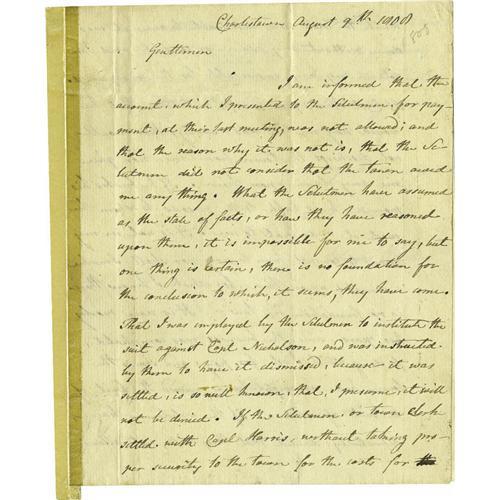 Charlestown August 9th 1808
808
Gentlemen
I am informed that the
account, which I presented to the Selectmen, for pay-
ment, at their last meeting, was not allowed; and
that the reason why it was not is, that the Se-
lectmen did not consider that the town owed
me any thing. What the Selectmen have assumed
as the state of facts, or how they have reasoned
upon them, it is impossible for me to say; but
one thing is certain, there is no foundation for
the conclusion to which, it seems, they have come.
That I was employed by the Selectmen to institute the
suit against Capt Nicholson, and was instructed
by them to have it dismissed, because it was
settled, is so well known, that, I presume, it will
not be denied. If the Selectmen, or town Clerk
settled with Capt Harris, without taking pro-
per security to the town for the costs for